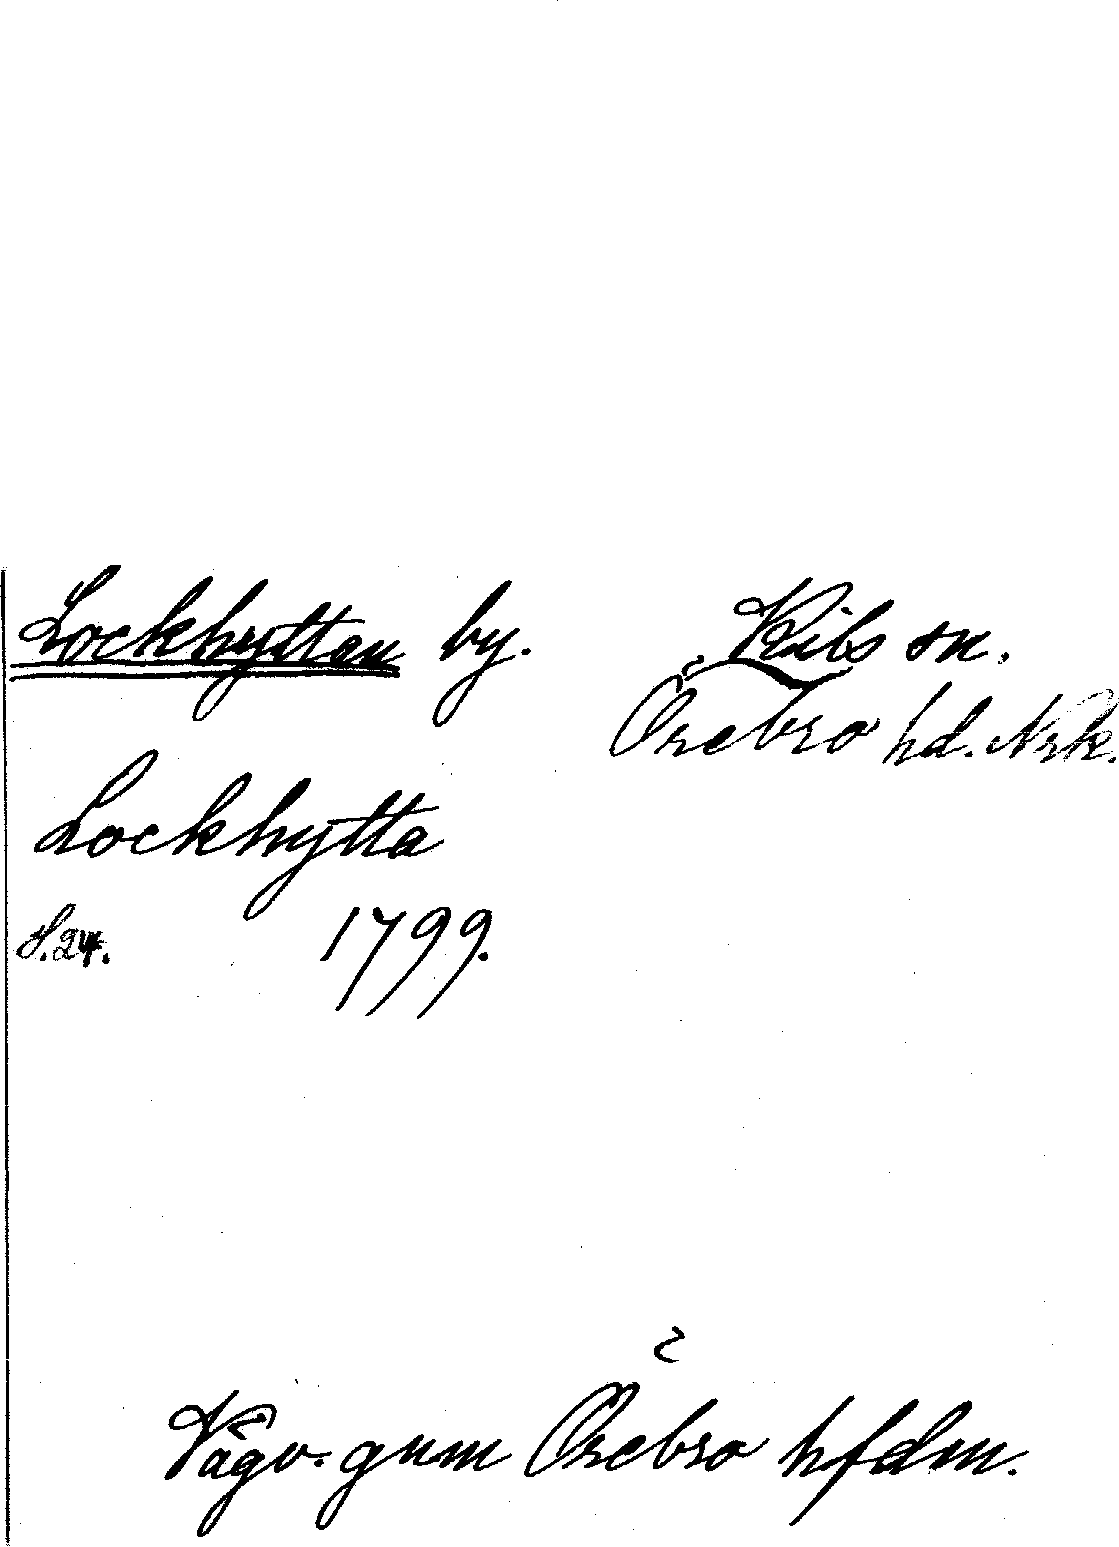 Lockhyttan by. Kils sn.
Örebro hd. Nrk.
Lockhytta
S.24. 1799.
Vägv. gnm Örebro hfdm.